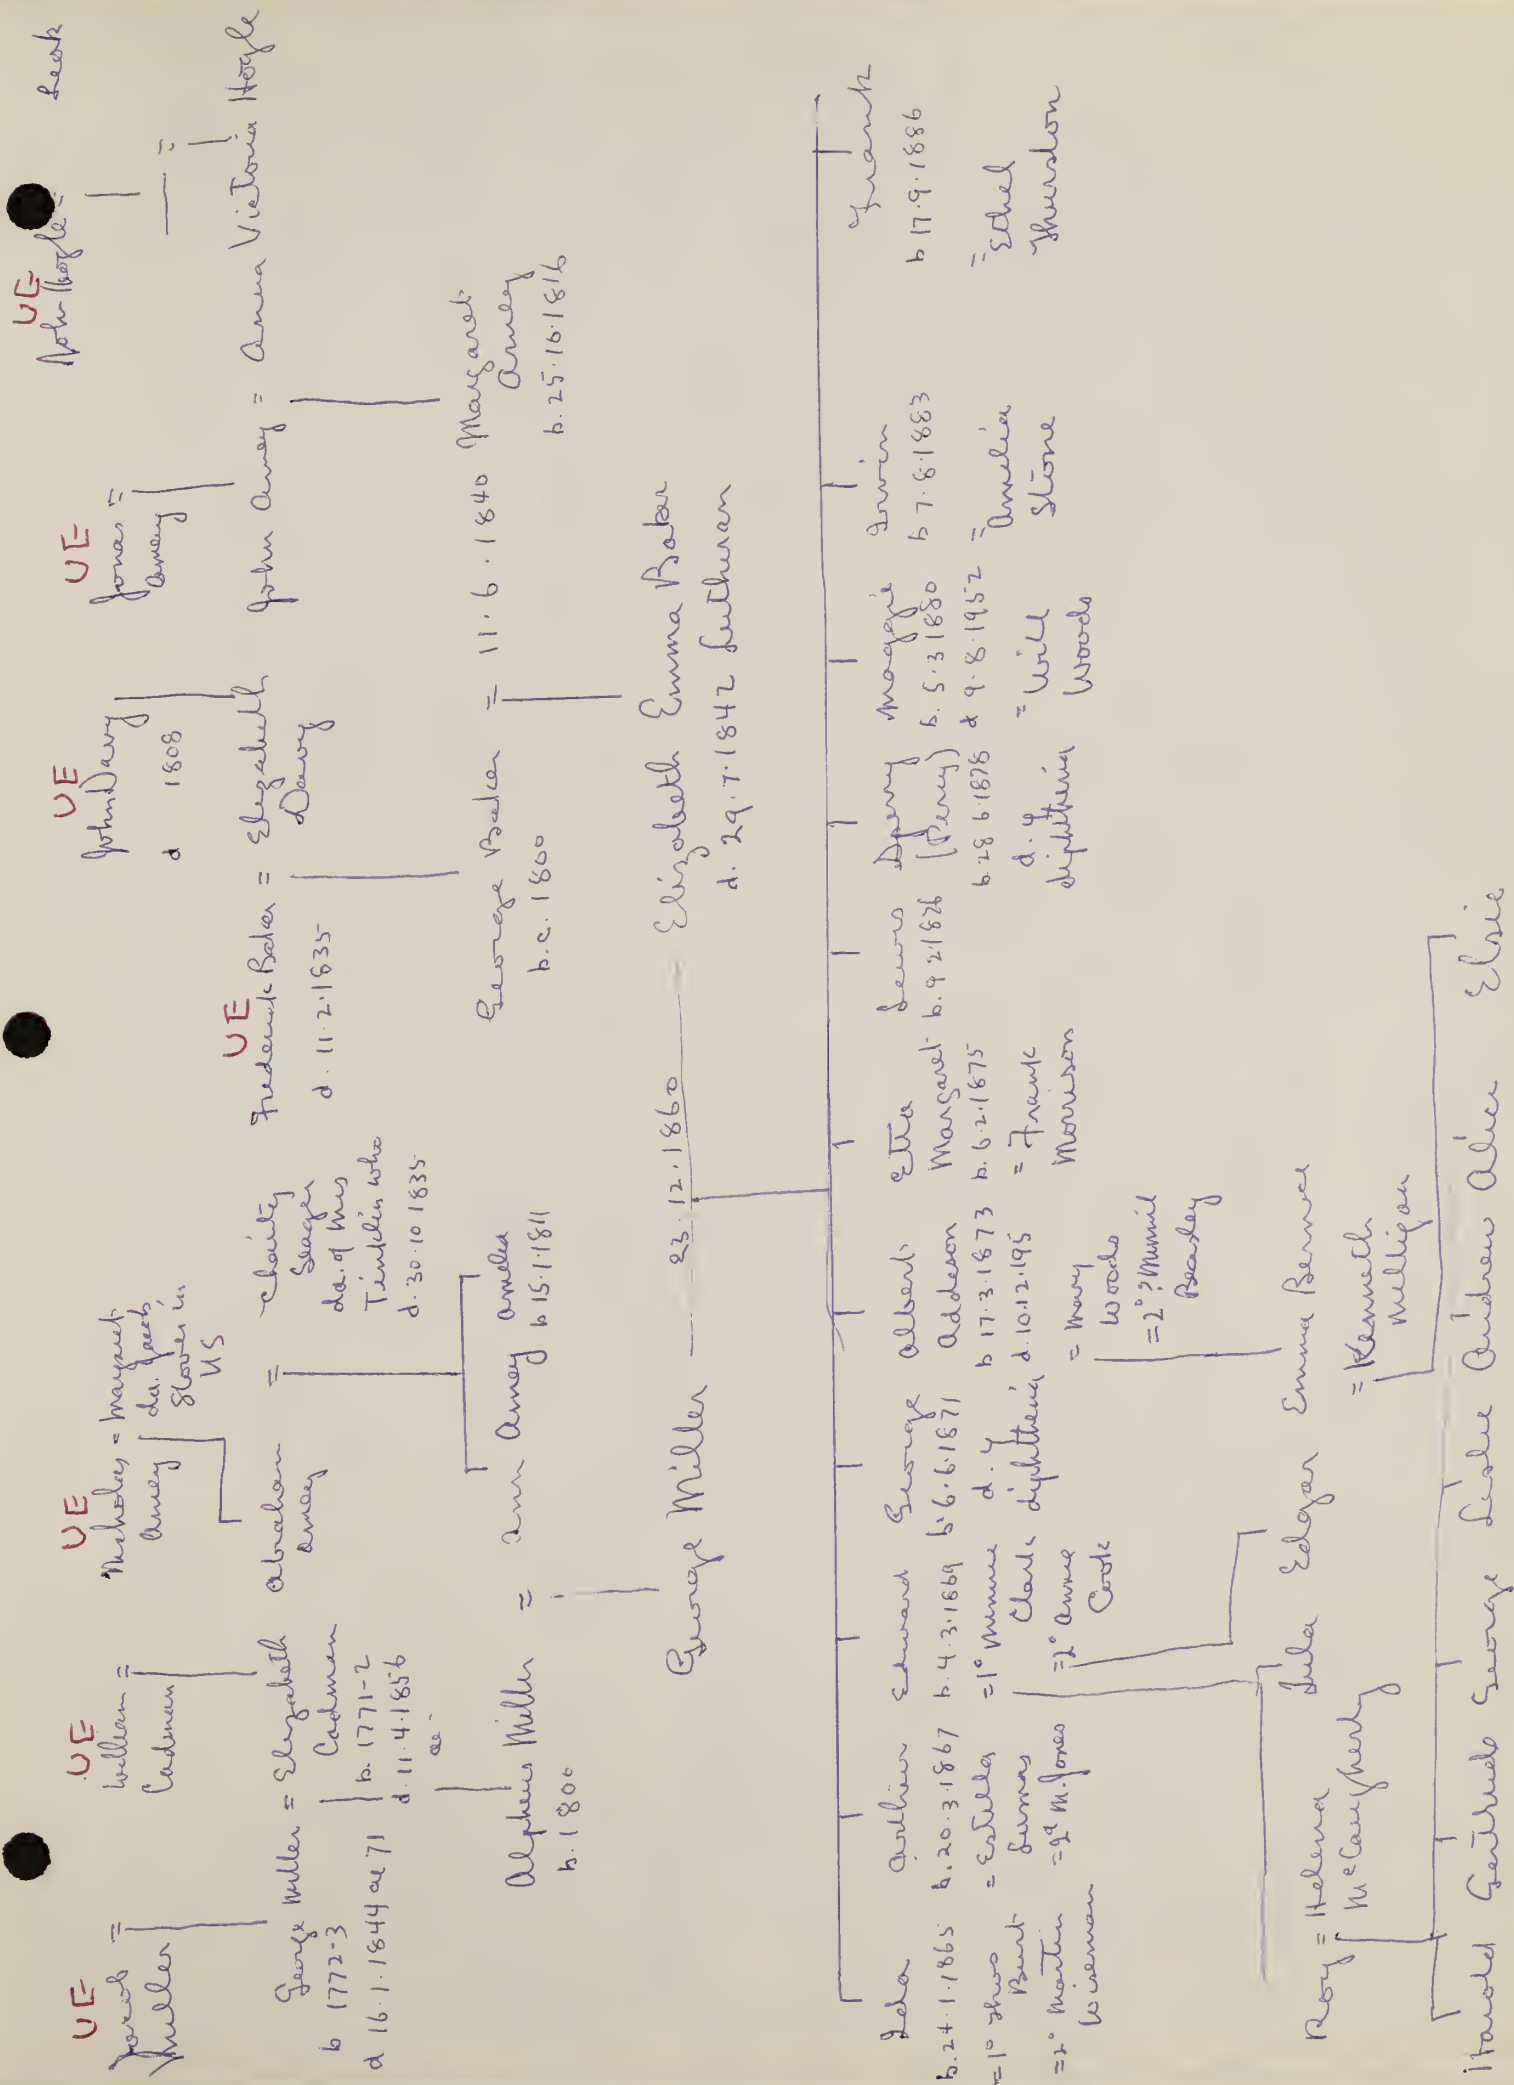 UE
UE
UE
UE
UE
UE
Jacob =
Miller
William =
Cadman
Nicholas = Margaret
Amey da. Jacob
Stover in
US
John Davy
d 1808
Jonas =
Amey
John Hogle =
Leak
UE
George Miller = Elizabeth
b 1772-3
Cadman
b. 1771-2
d 16.1.1844 ae 71
d. 11.4.1856
ae.
Abraham =
Amey
Charity
Seager
da. of Mrs
Tinklin who
d. 30.10 1835
Frederick Baker = Elizabeth
Davy
d. 11.2.1835
John Amey = Anna Victoria Hogle
Alpheus Miller = Ann Amey
b. 1800
Amelia
b 15.1.1811
George Baker = 11.6.1840 Margaret
b.c. 1800
Amey
b. 25.10.1816
George Miller — 23.12.1860 — Elizabeth Emma Baker
d. 29.7.1842 Lutheran
Ida
b. 24.1.1865
=1° Thos
Burt
=2° Martin
Wiseman
Arthur
b. 20.3.1867
= Estella
Lumas
=2° M. Jones
Edward
b. 4.3.1869
=1° Minnie
Clark
=2° Annie
Cook
George
b. 6.6.1871
d. of
diphtheria
Albert
Addeson
b 17.3.1873
d. 10.12.195
= Mary
Woods
=2° ? Minnie
Beasley
Etta
Margaret
b. 6.2.1875
= Frank
Morrison
Lewis
b. 9 2.1876
Sperry
(Perry)
b. 28 6.1878
d. of
diphtheria
Maggie
b. 5.3 1880
d 9.8.1952
= Will
Woods
Irwin
b 7.8.1883
= Amelia
Stone
Frank
b 17.9.1886
= Ethel
Thurston
Roy = Helena
McCaugherty
Lula
Edgar
Emma Bernice
= Kenneth
Milligan
Harold Gertrude George Leslie Andrew Alice Elsie